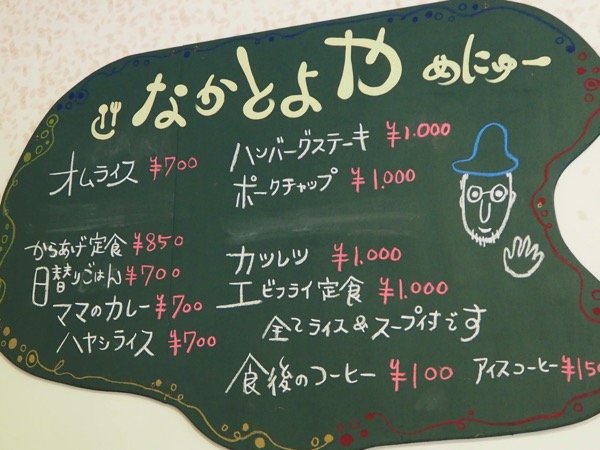 なかとよや めにゅー
オムライス ¥700
ハンバーグステーキ ¥1.000
ポークチャップ ¥1.000
からあげ定食 ¥850
日替りごはん ¥700
ママのカレー ¥700
ハヤシライス ¥700
カツレツ ¥1.000
エビフライ定食 ¥1.000
全てライス&スープ付です
食後のコーヒー ¥100
アイスコーヒー ¥150